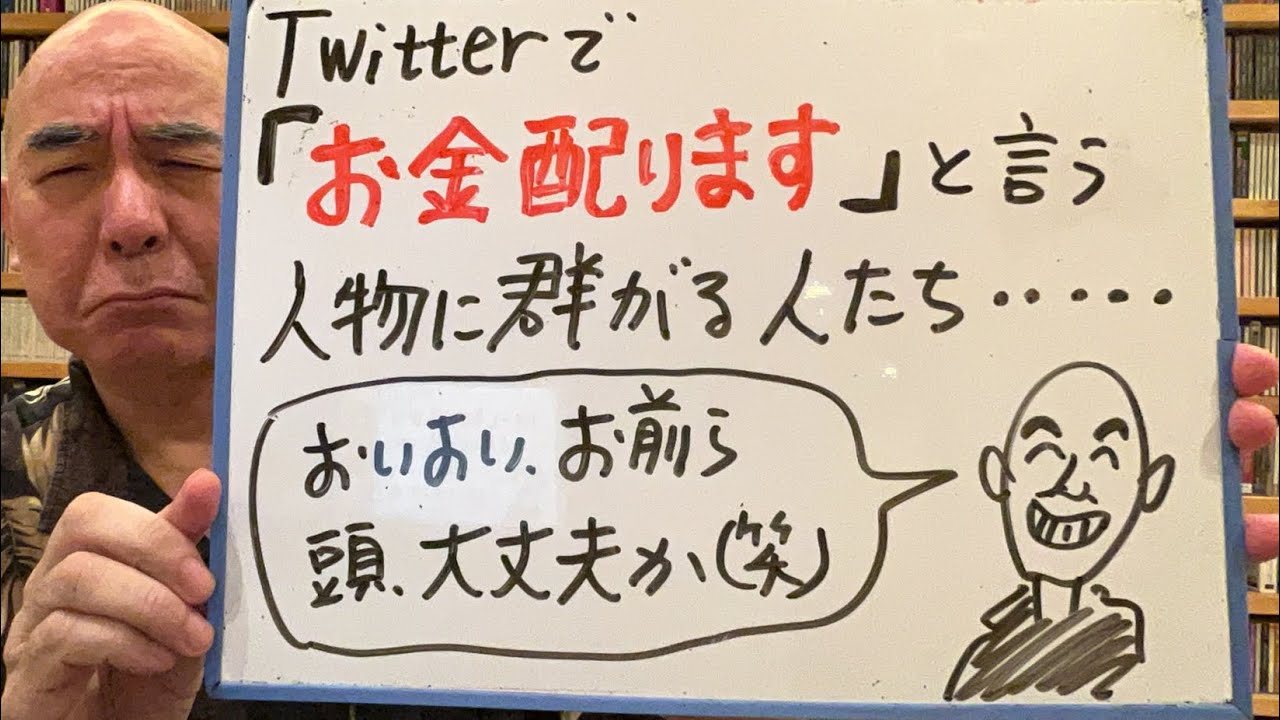 Twitterで
「お金配ります」と言う
人物に群がる人たち・・・・・
おいおい、お前ら
頭、大丈夫か(笑)